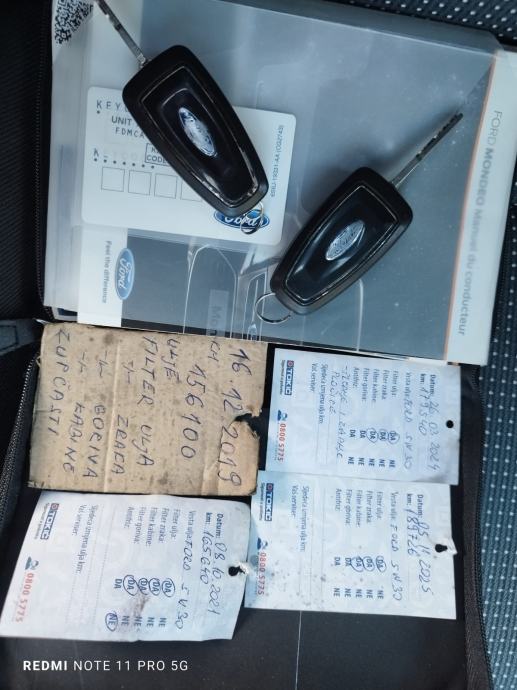 FORD MONDEO Manuel du conducteur
KEY
UNIT
FDMCA
Ford
Feel the difference
Ford
16.12.2019
156100
ULJE
FILTER ULJA
-//- ZRAKA
-//- GORIVA
-//- KABINE
ZUPČASTI
TOKIĆ
0800 5775
Datum:
km: 179540
Vrsta ulja: FORD 5W30
Filter ulja: DA NE
Filter zraka: DA NE
Filter kabine: DA NE
Filter goriva: DA NE
Antifriz:
Sljedeća izmjena ulja km:
Vaš serviser:
TOKIĆ
0800 5775
Datum: 05.11.2025
km: 189726
Vrsta ulja: FORD 5W30
Filter ulja: DA NE
Filter zraka: DA NE
Filter kabine: DA NE
Filter goriva: DA NE
Antifriz:
Sljedeća izmjena ulja km:
Vaš serviser:
TOKIĆ
0800 5775
Datum: 08.10.2021
km: 165670
Vrsta ulja: FORD 5W30
Filter ulja: DA NE
Filter zraka: DA NE
Filter kabine: DA NE
Filter goriva: DA NE
Antifriz: DA NE
Sljedeća izmjena ulja km:
Vaš serviser:
REDMI NOTE 11 PRO 5G